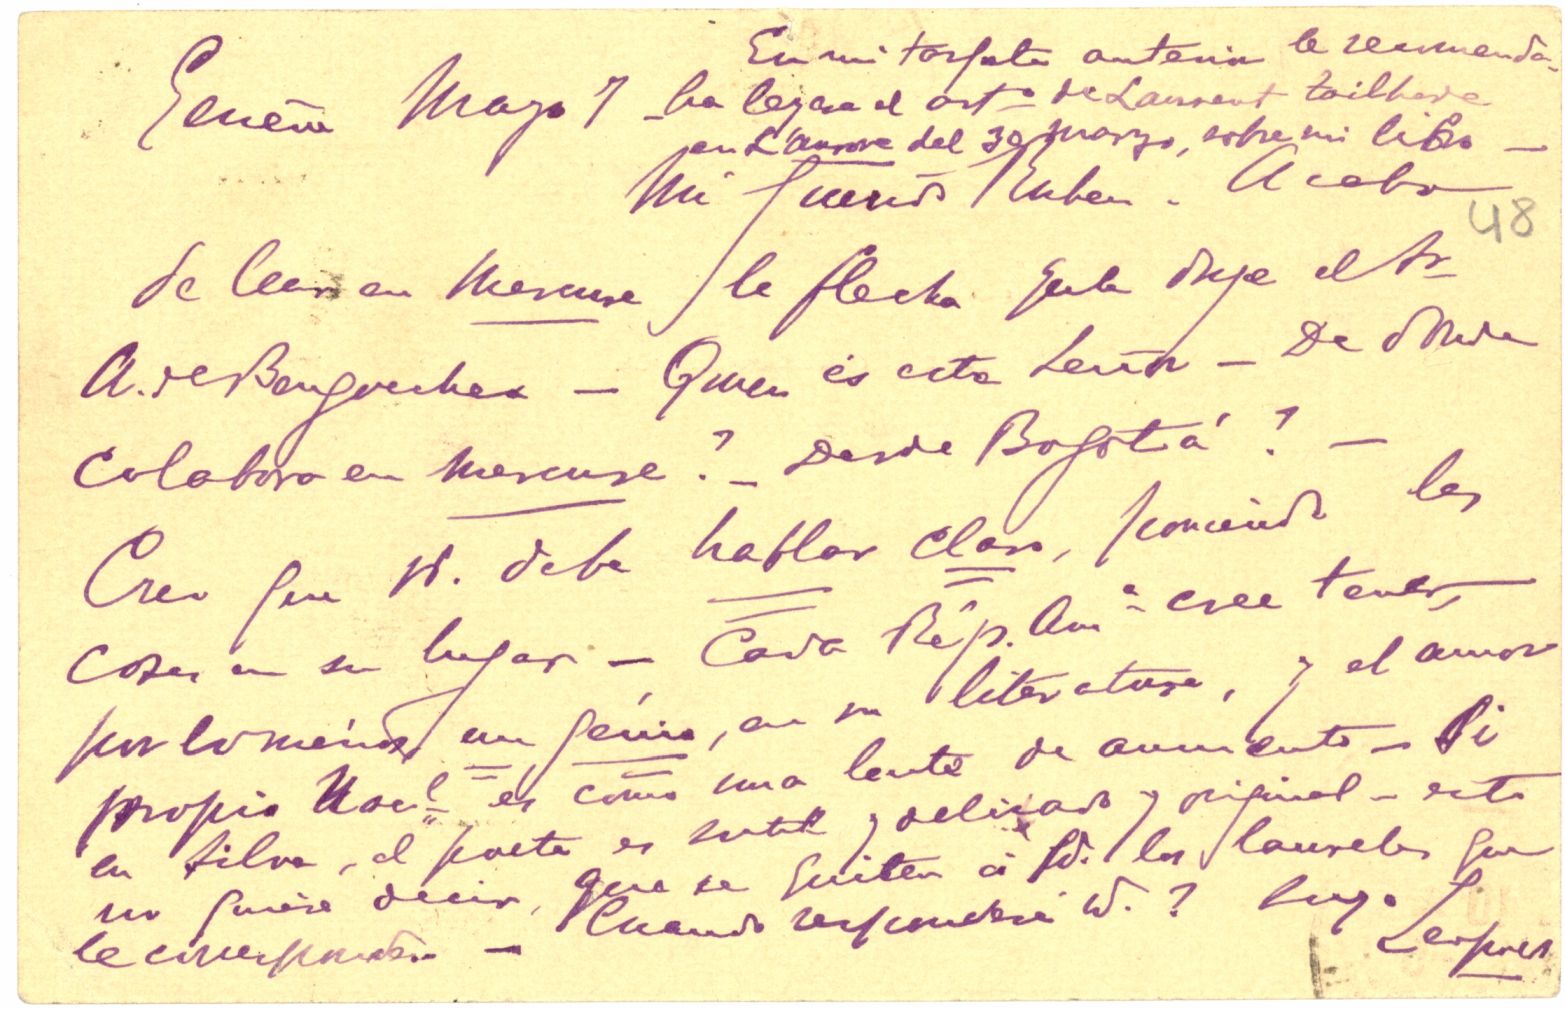 En mi tarjeta anterior le recomenda-
Genève Mayo 7 -ba leyese el art.o de Laurent Tailhade
en L'Aurore del 30 Marzo, sobre mi libro —
Mi querido Ruben. Acabo
48
de leer en Mercure la flecha que le dirije el Sr
A. de Bengoechea — Quien és este Señor — De donde
colabora en Mercure? — Desde Bogotá? —
Creo que Vd. debe hablar claro, poniendo las
cosas en su lugar — Cada Rép. Am.a cree tener,
por lo ménos un génio, en su literatura, y el amor
propio Nac.l es como una lente de aumento — Si
en Silva, el poeta es sutil y delicado y original — esto
no quiere decir, que se quiten á Vd. los laureles que
le corresponden — Cuando responderá Vd.? Suyo